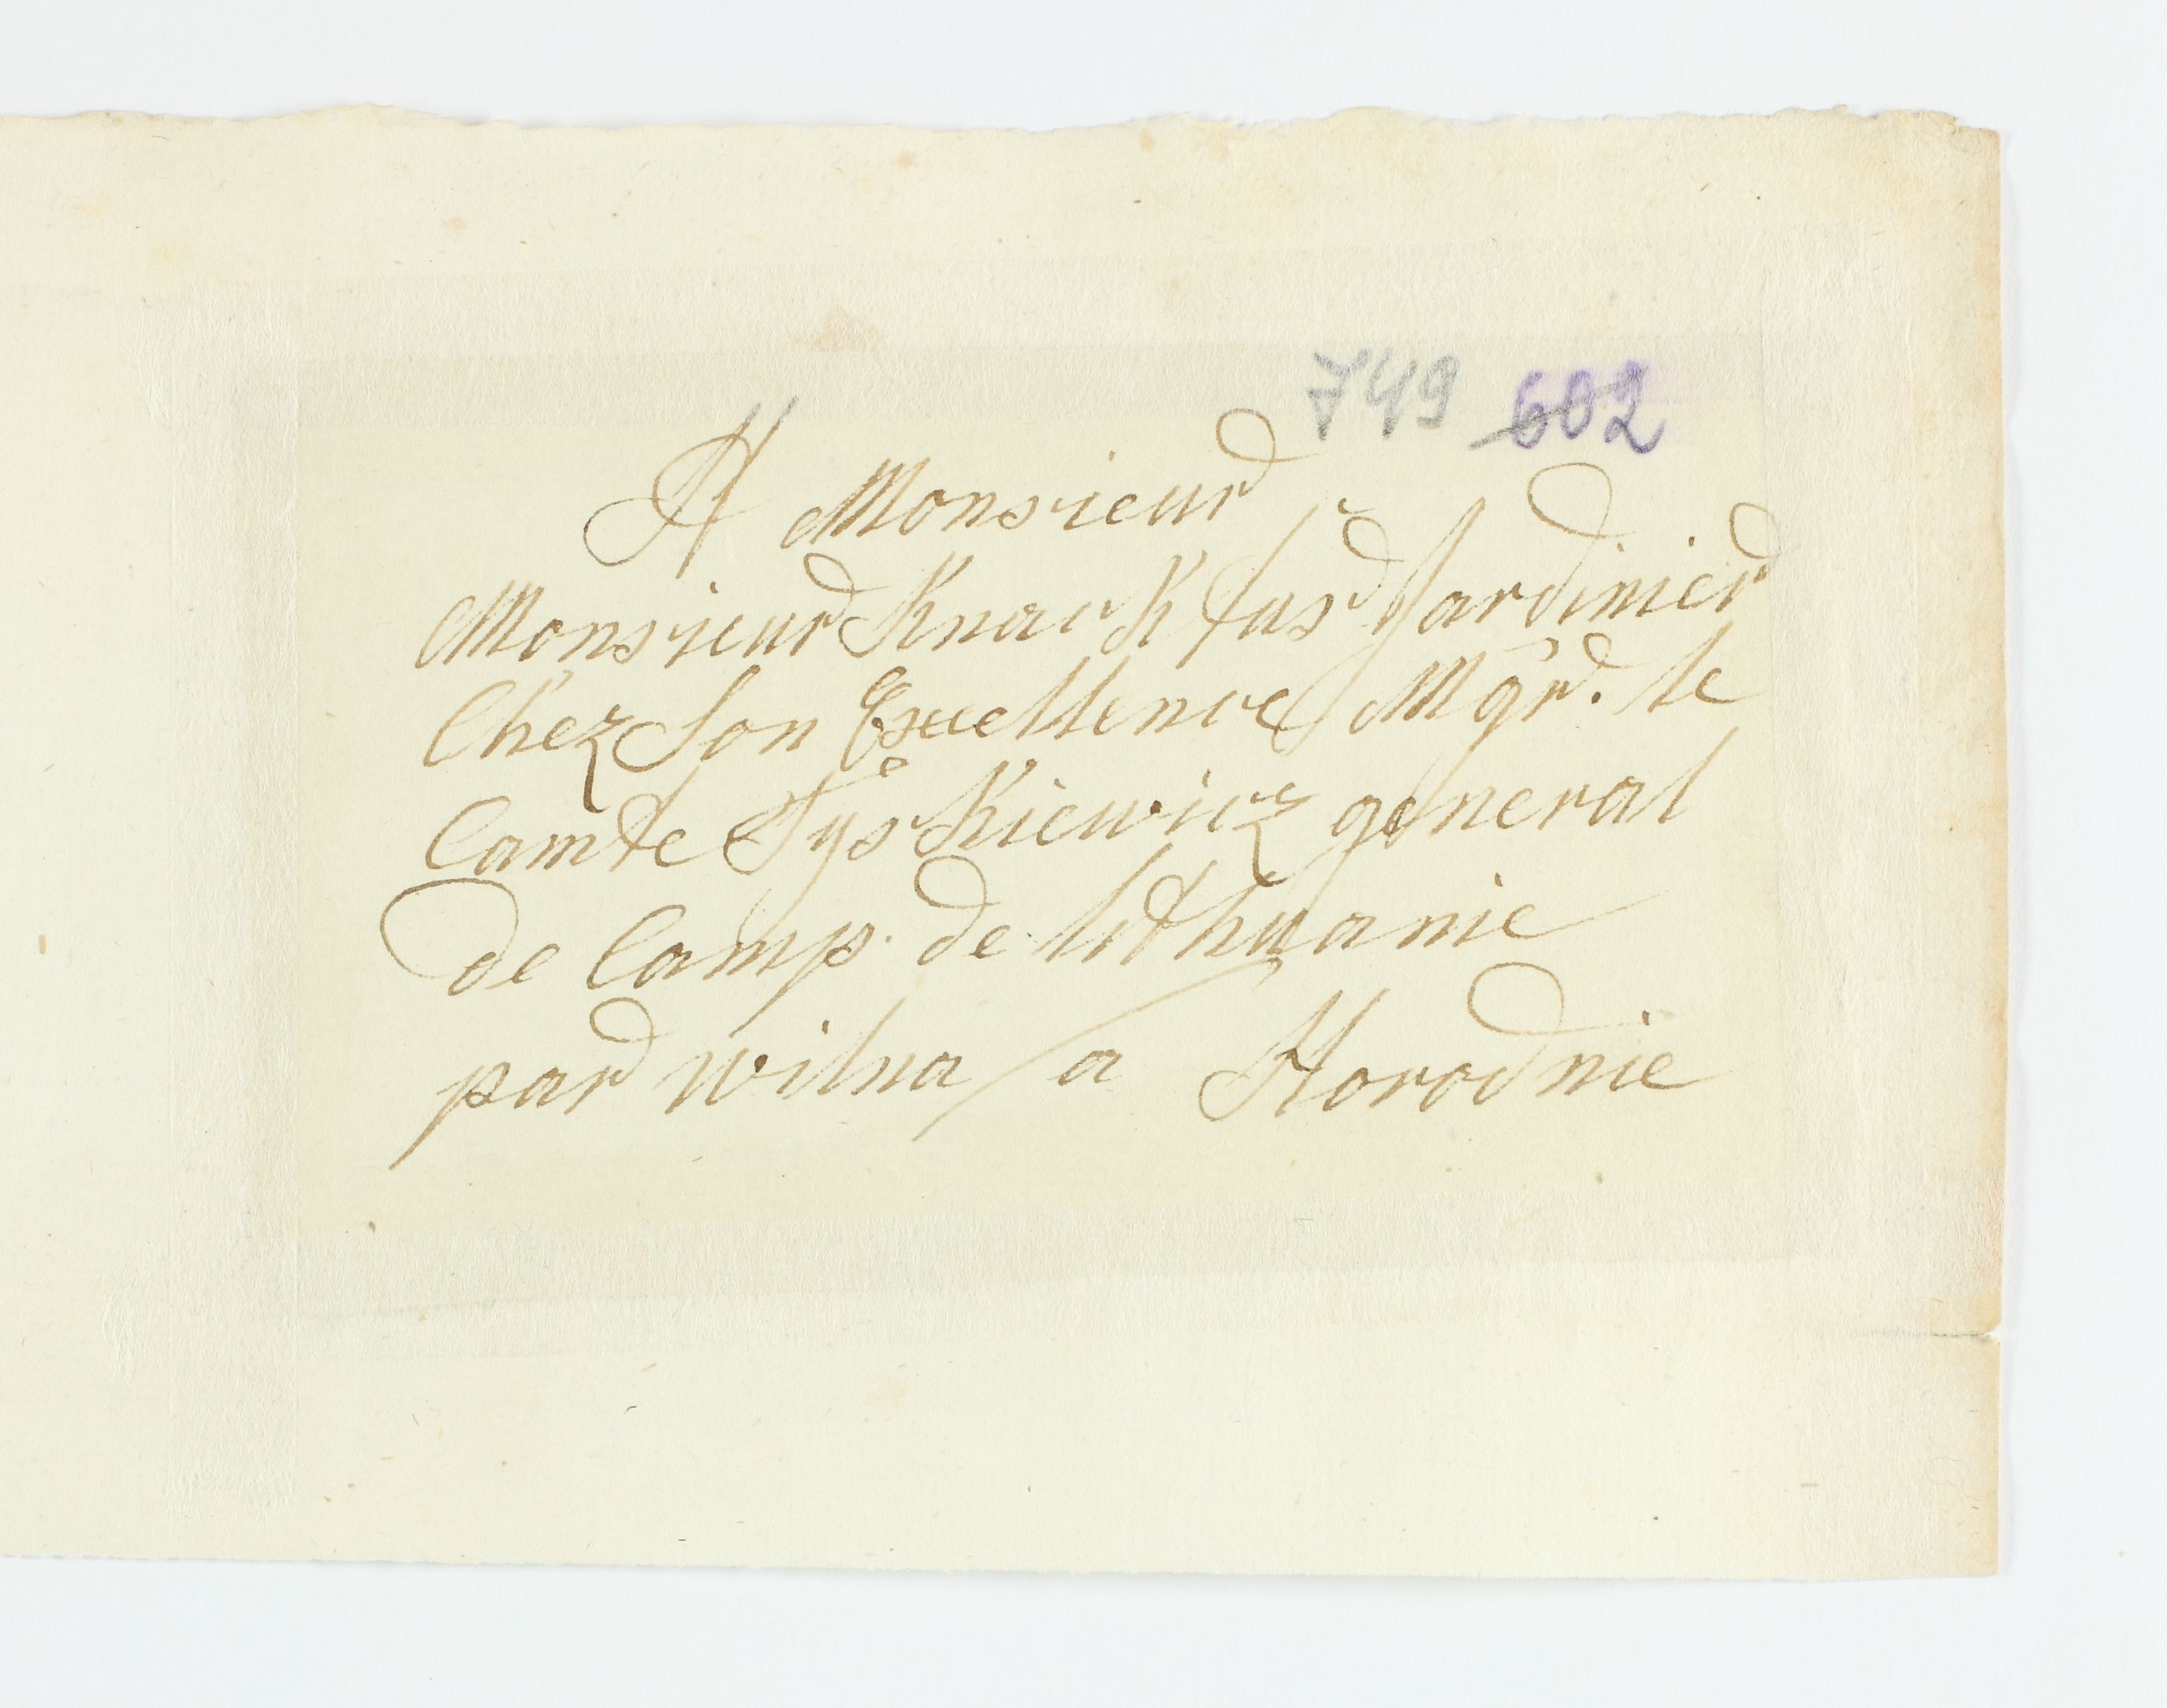 749 602
A Monsieur
Monsieur Knackfus Jardinier
Chez Son Excellence Mgr. le
Comte Tyskiewicz general
de Camp. de lithuanie
par wilna / a Horodnie